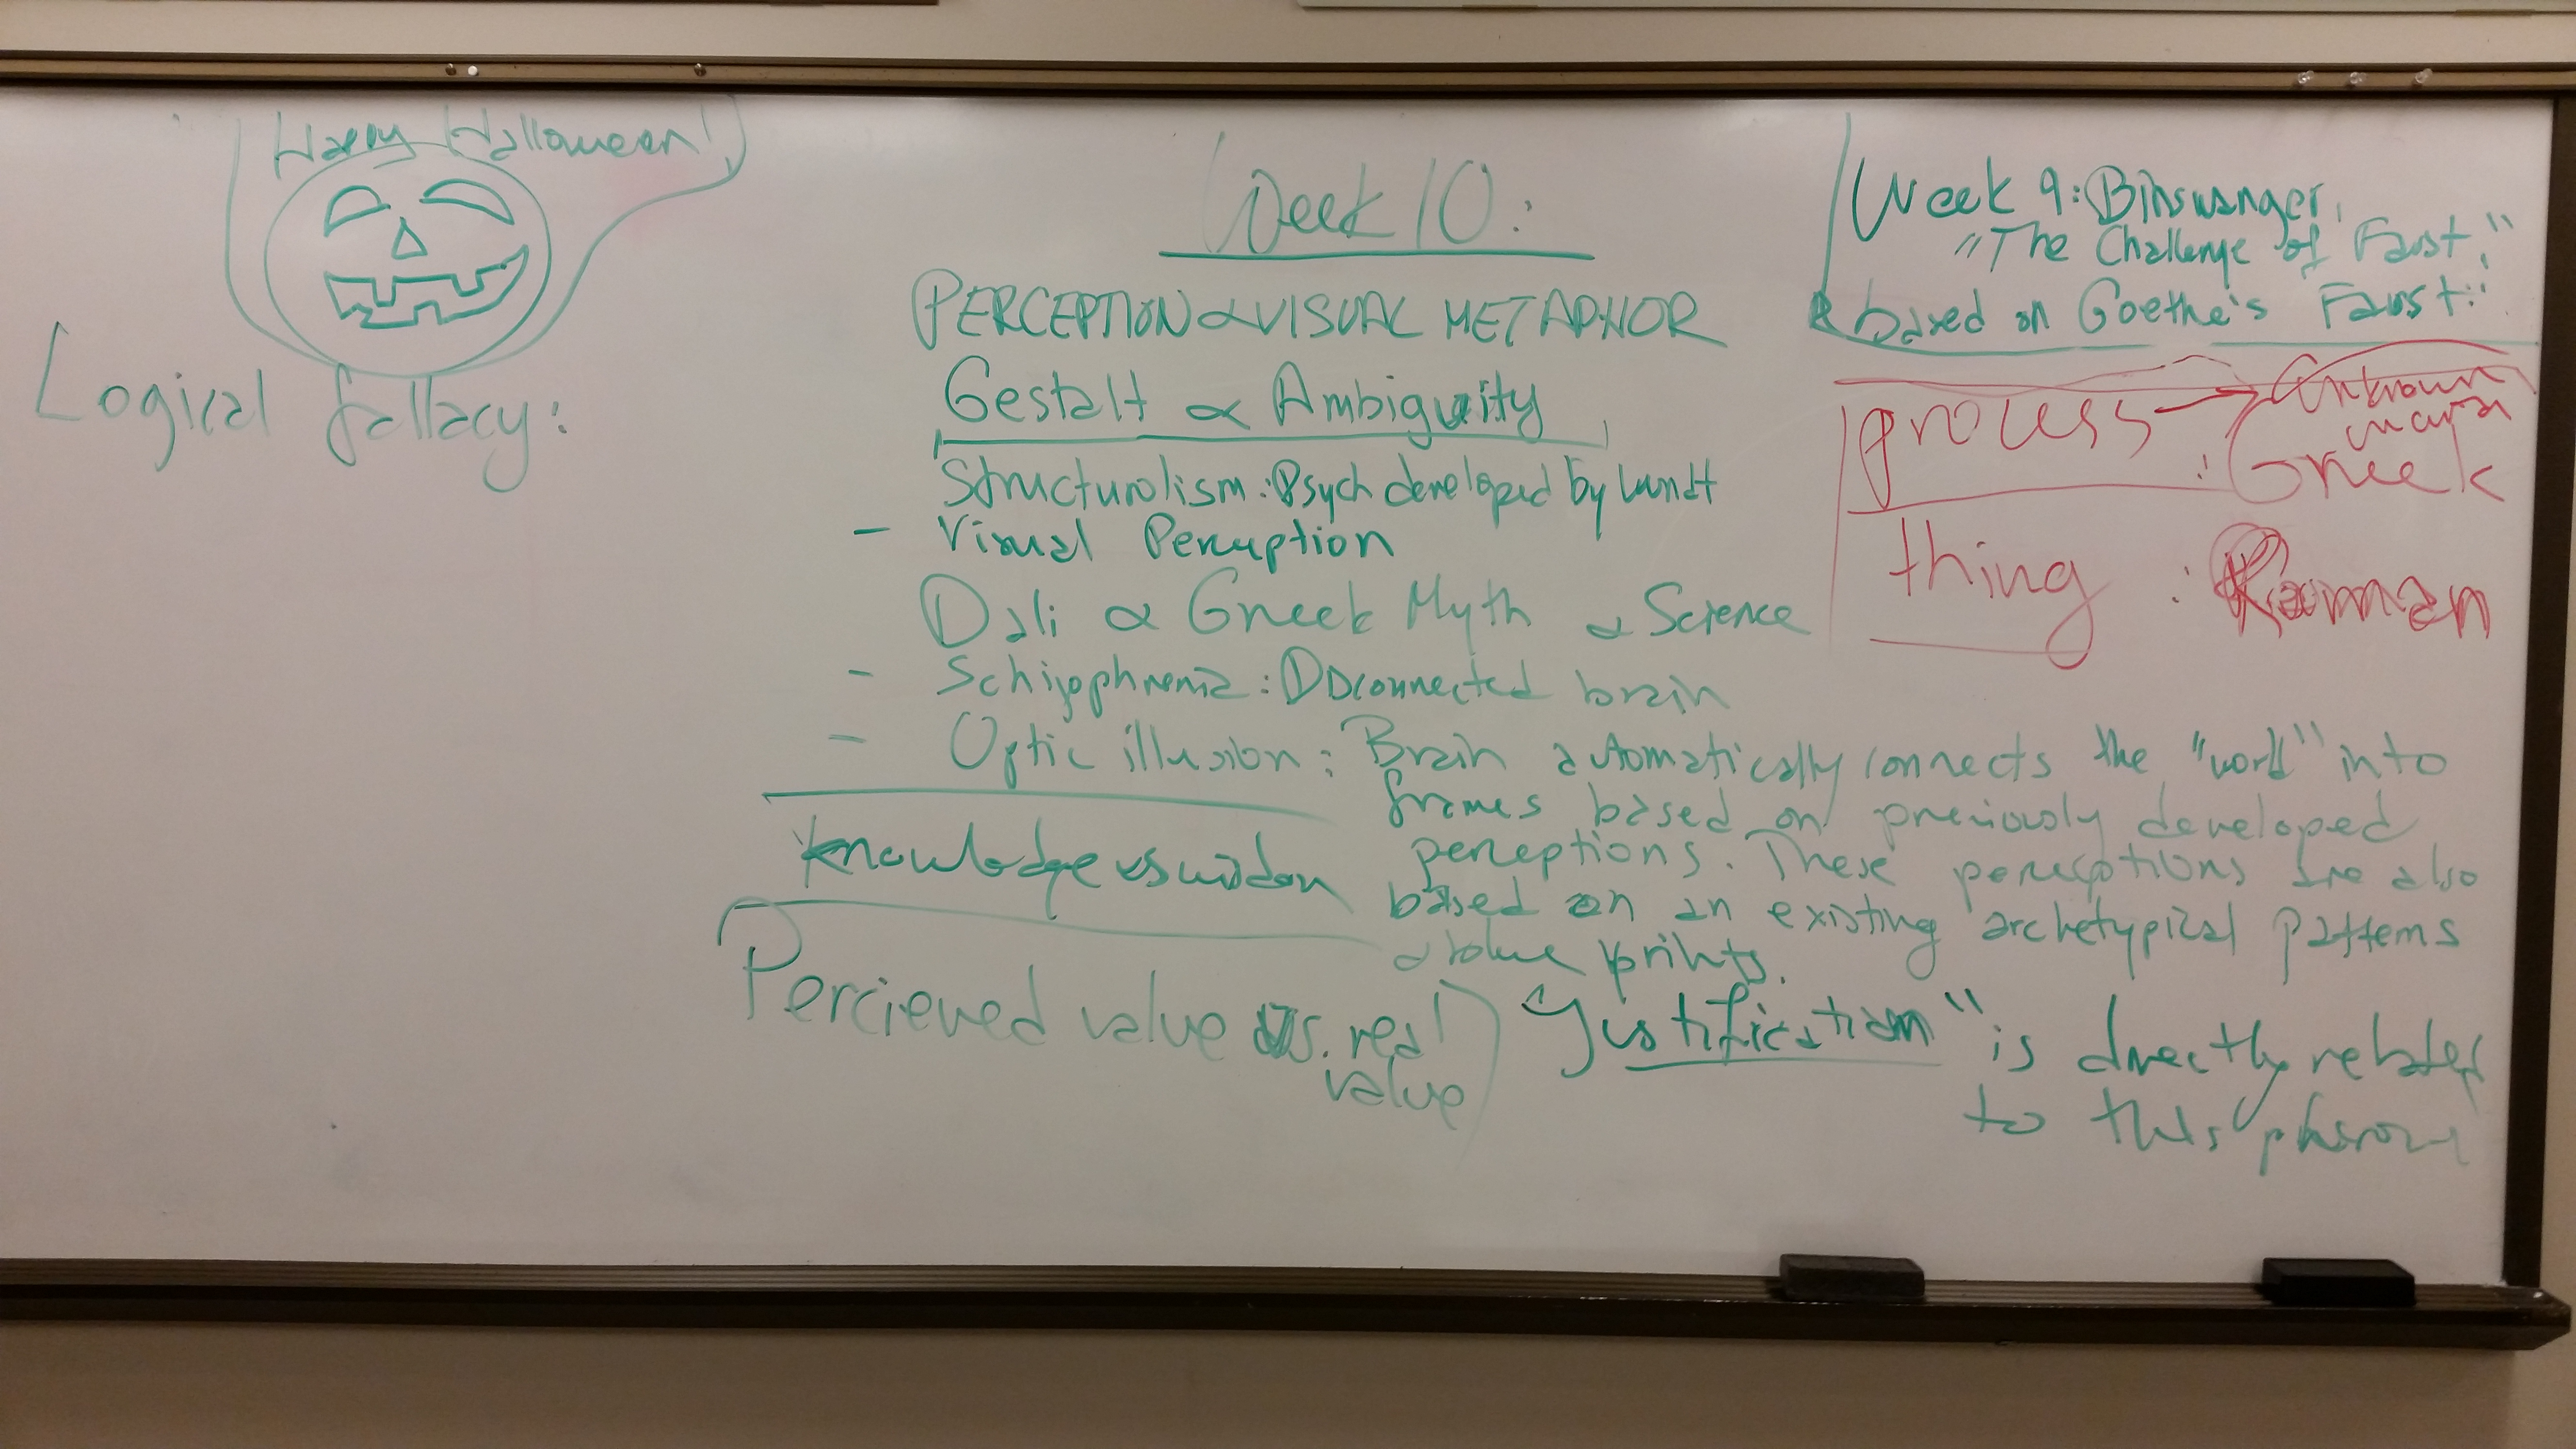 Happy Halloween!
Logical fallacy:
Week 10:
PERCEPTION & VISUAL METAPHOR
Gestalt & Ambiguity
Structuralism: Psych developed by Wundt
- Visual Perception
Dali & Greek Myth & Science
- Schizophrenia: Disconnected brain
- Optic illusion: Brain automatically connects the "world" into
frames based on previously developed
perceptions. These perceptions are also
based on an existing archetypical patterns
& blue prints.
Knowledge vs wisdom
Percieved value vs. real
value
"Justification" is directly related
to this
Week 9: Binswanger,
"The Challenge of Faust,"
based on Goethe's Faust."
process → Unknown
: Greek
thing : Roman